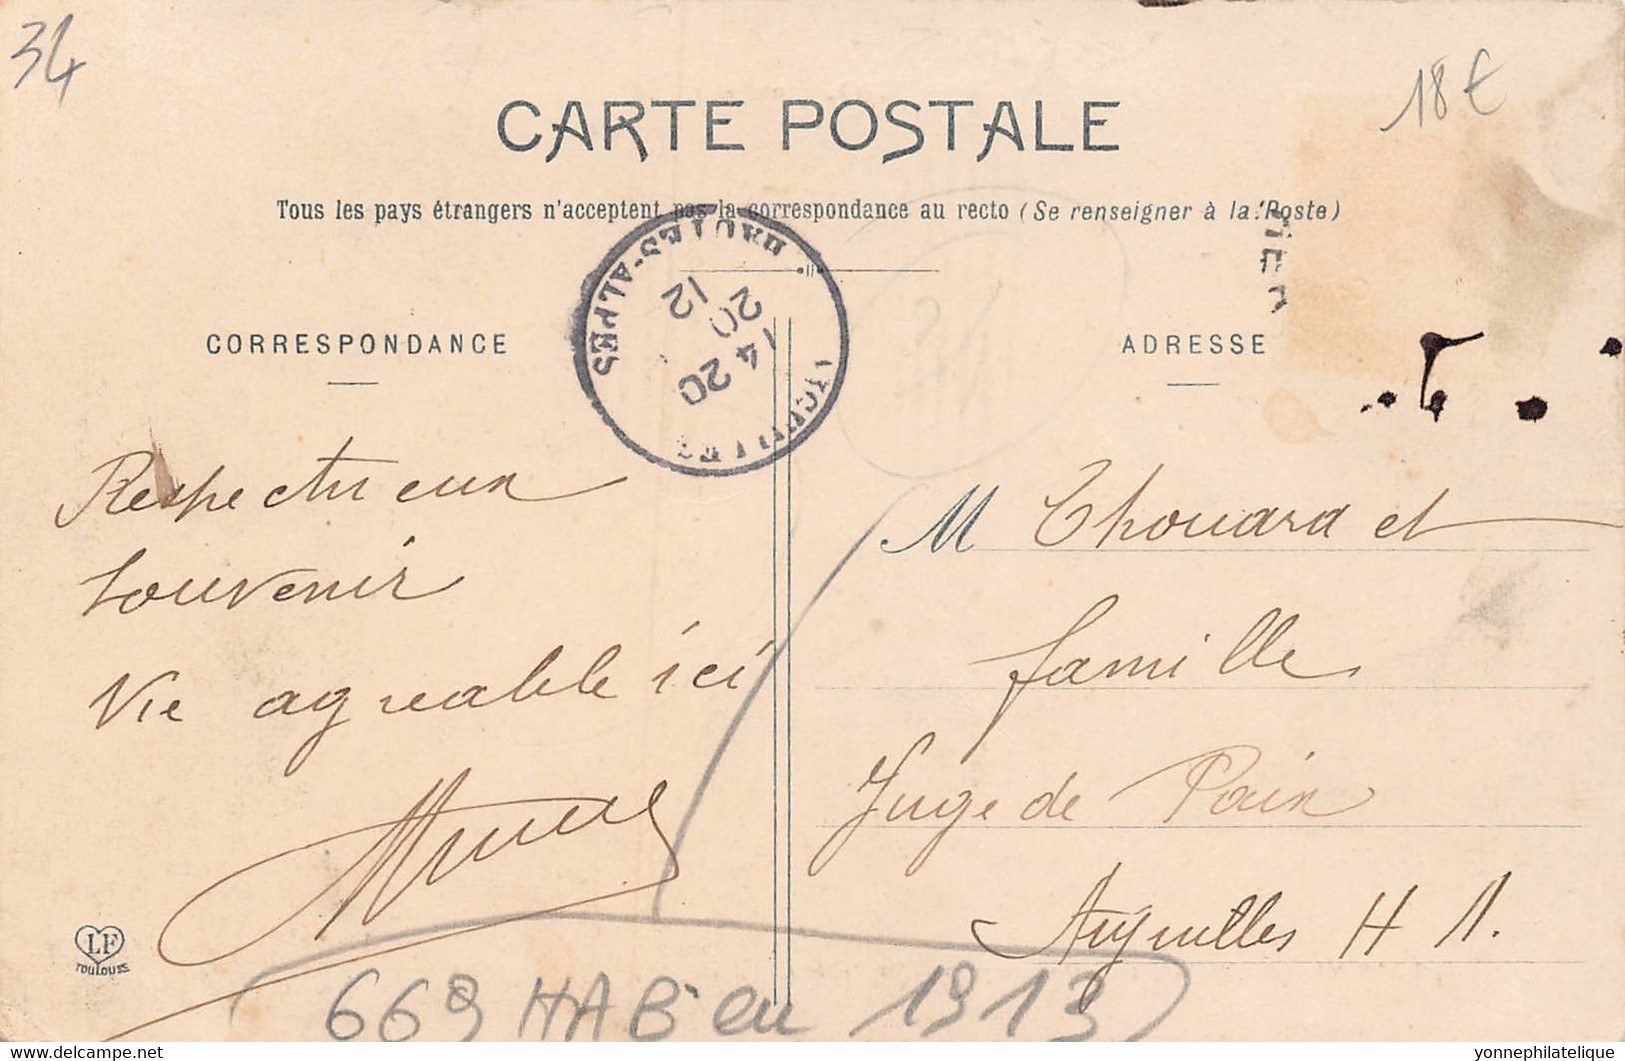 34
18€
CARTE POSTALE
Tous les pays étrangers n'acceptent pas la correspondance au recto (Se renseigner à la Poste)
HAUTES-ALPES
14 20
20
12
CORRESPONDANCE
ADRESSE
Respectueux
souvenir
Vie agréable ici
M Thouard et
famille
Juge de Paix
Aiguilles H A.
LF
TOULOUSE
669 HAB en 1913
yonnephilatelique
https://www.delcampe.net
yonnephilatelique